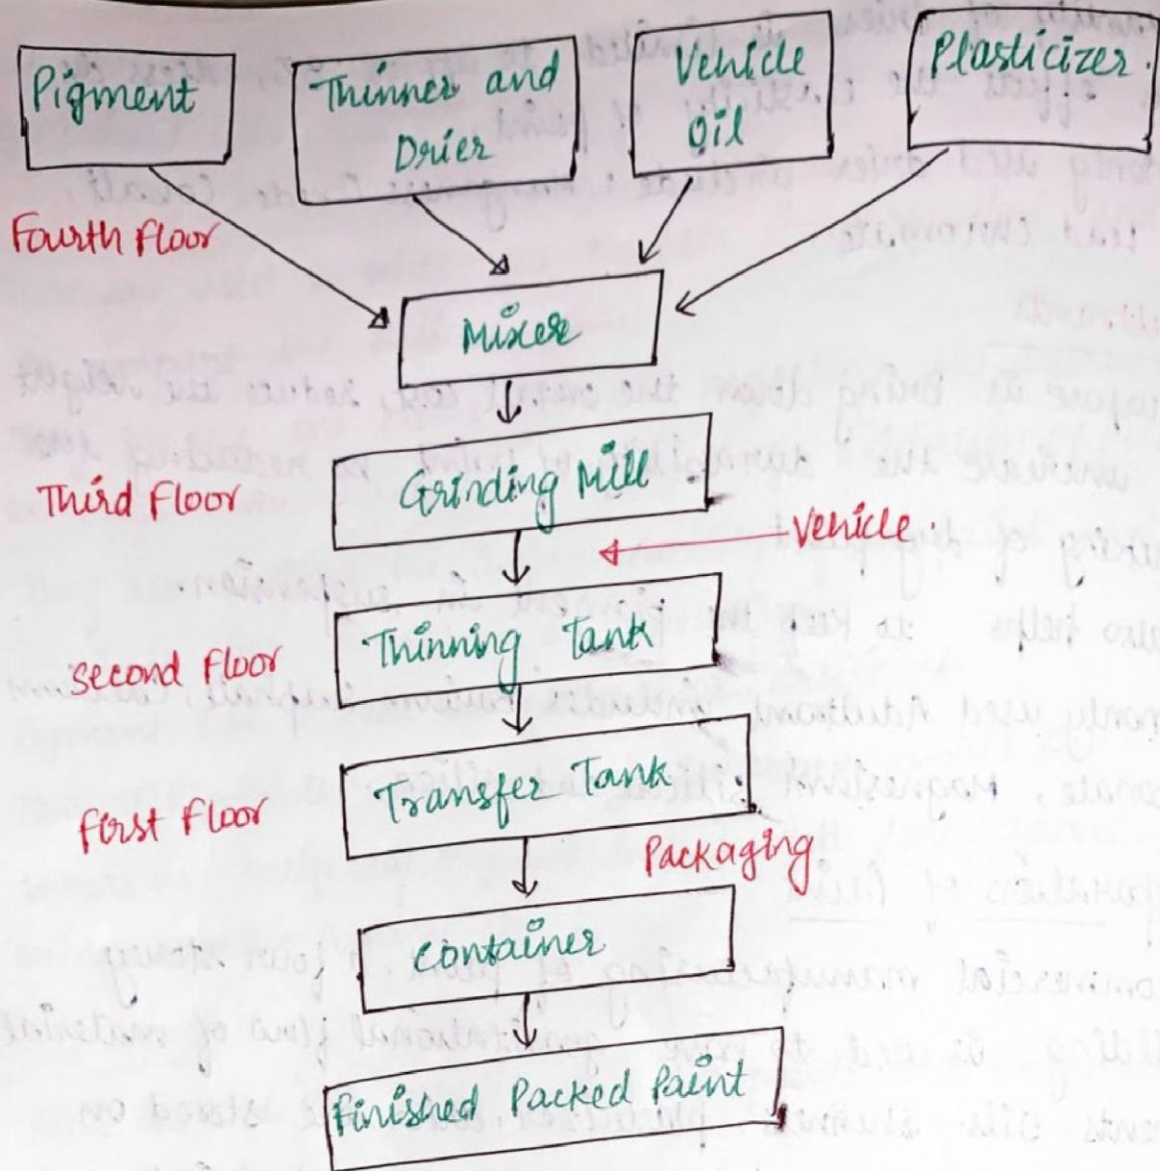 Pigment
Thinner and
Drier
Vehicle
Oil
Plasticizer.
Fourth Floor
Mixer
Third Floor
Grinding Mill
Vehicle.
Second Floor
Thinning Tank
First Floor
Transfer Tank
Packaging
Container
Finished Packed Paint